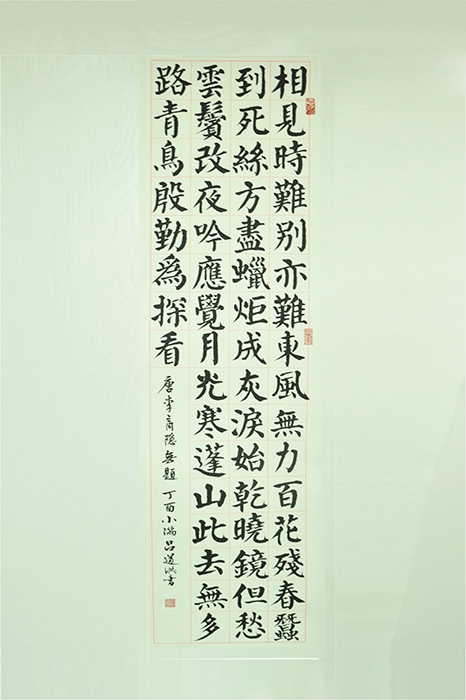 相見時難別亦難東風無力百花殘春蠶
到死絲方盡蠟炬成灰淚始乾曉鏡但愁
雲鬢改夜吟應覺月光寒蓬山此去無多
路青鳥殷勤爲探看 唐李商隱無題 丁酉小滿呂道洪書